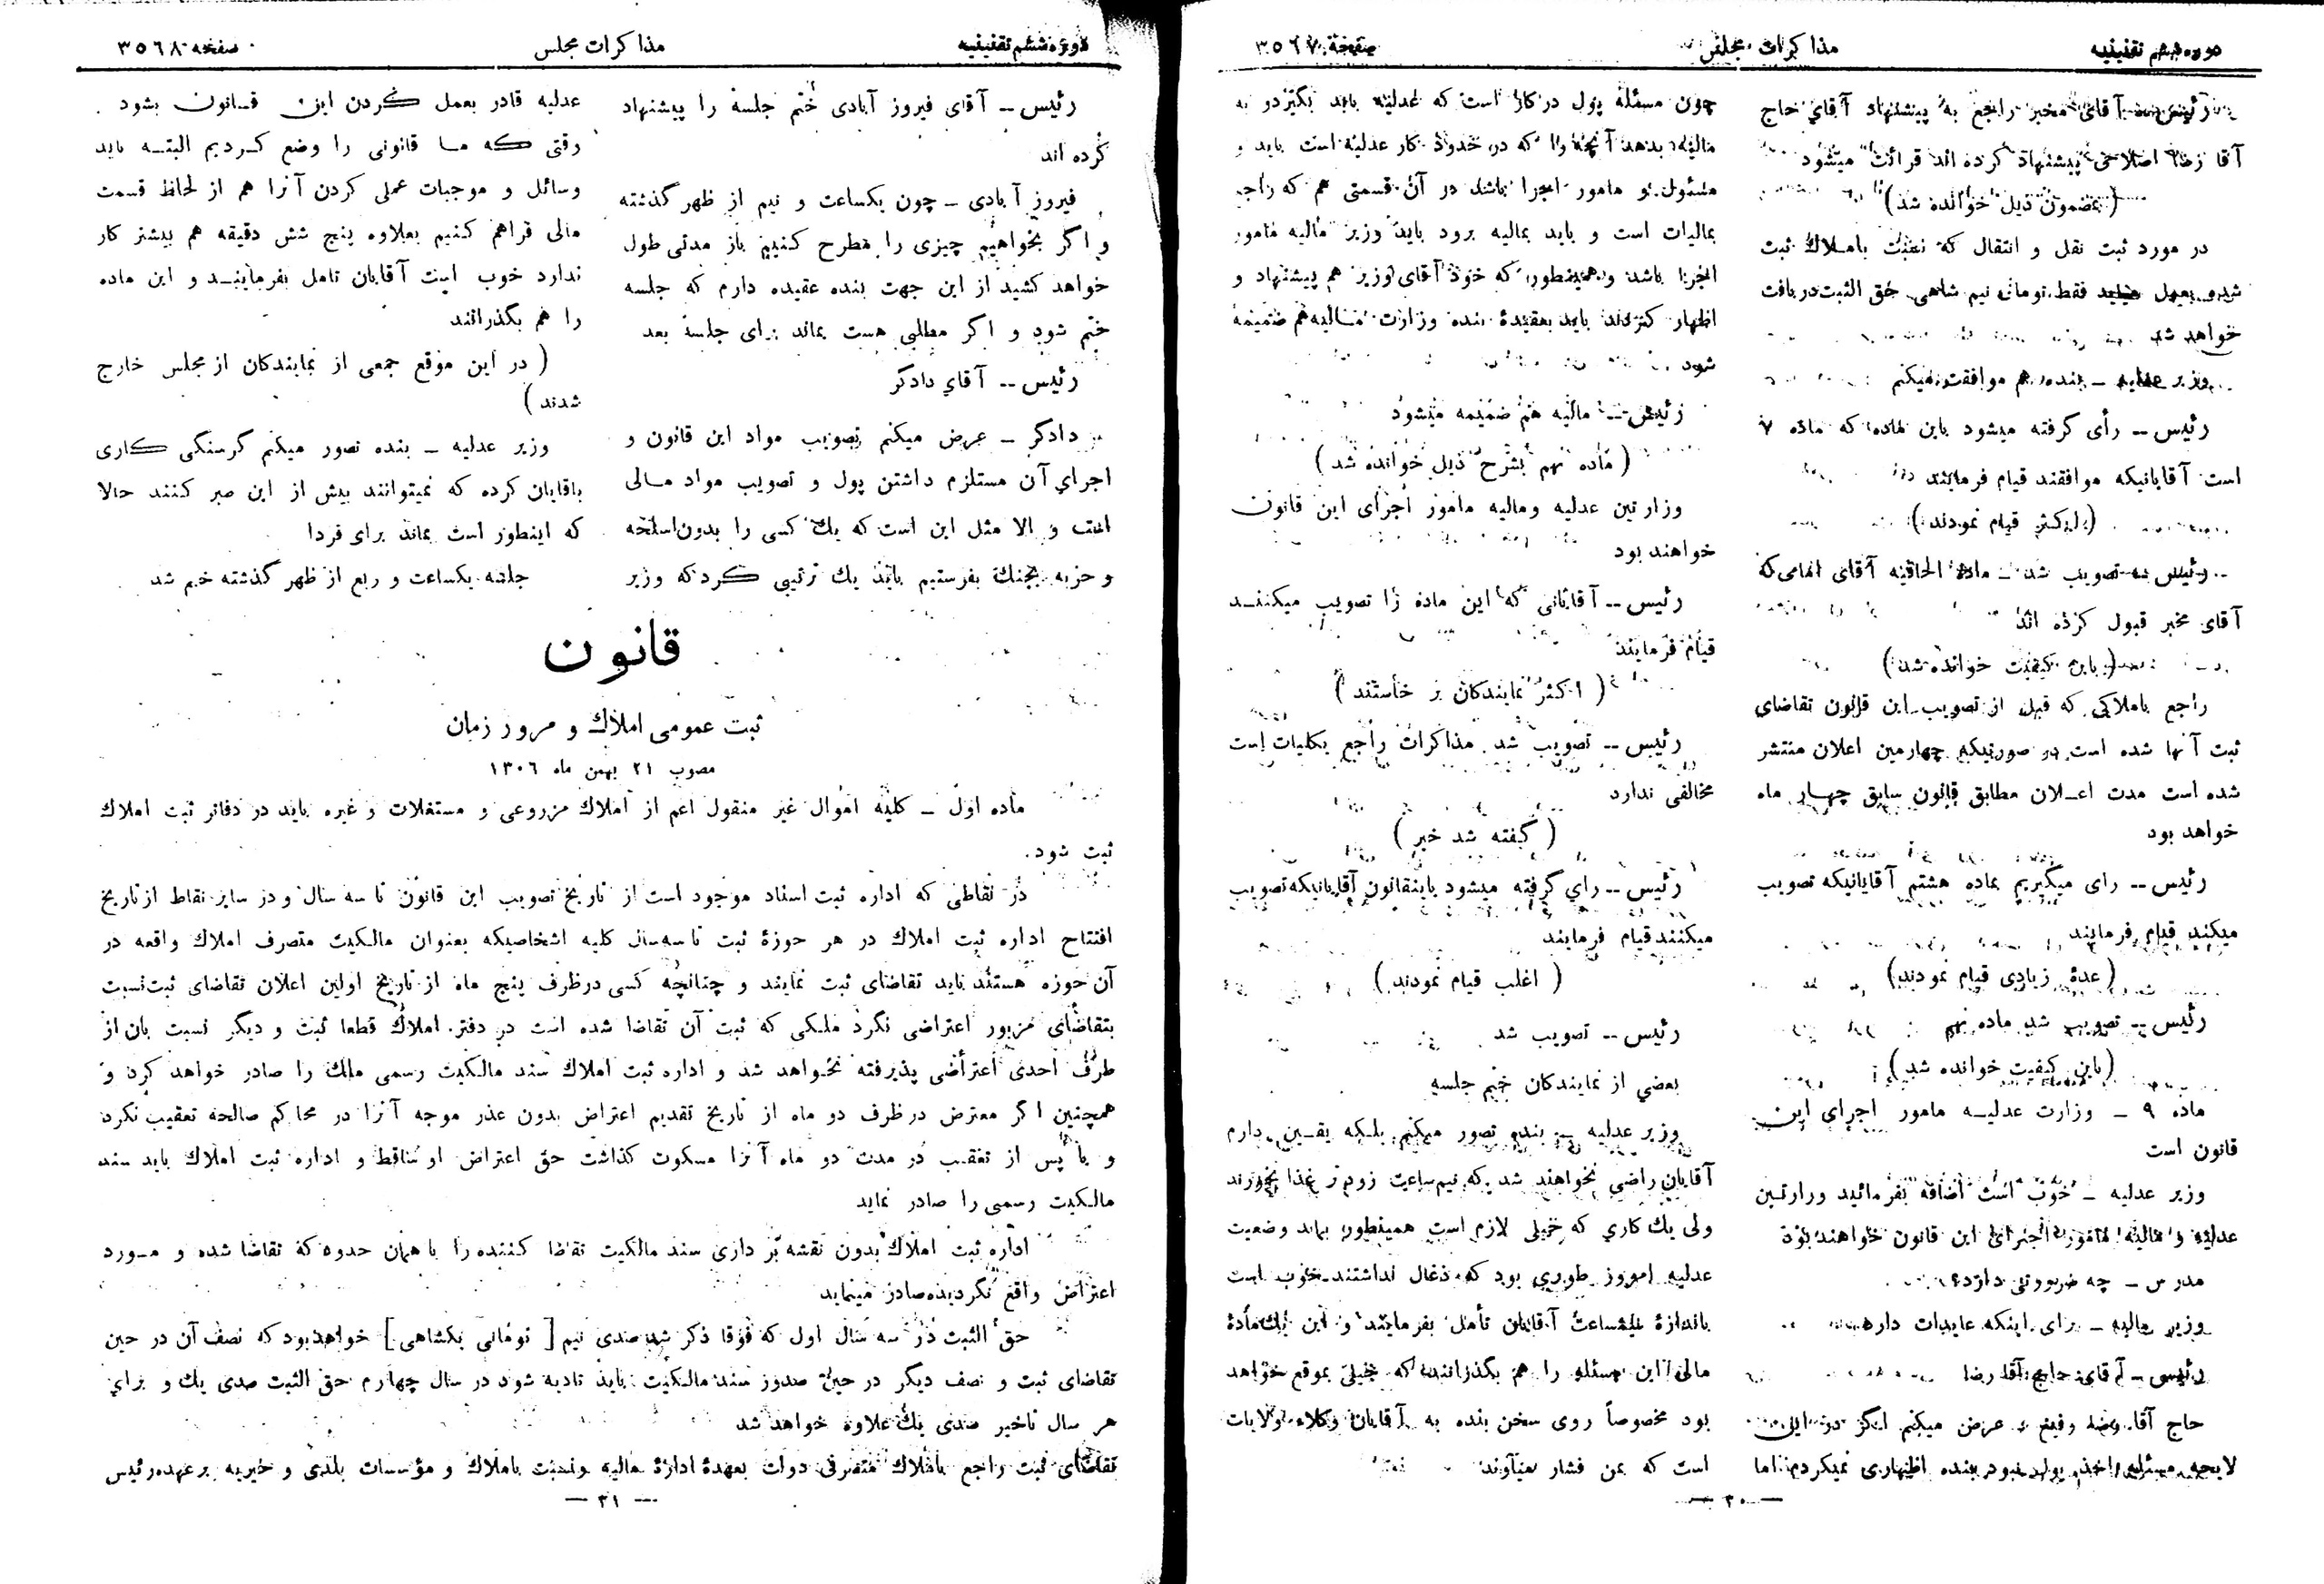 دوره ششم تقنینیه
مذاکرات مجلس
صفحه ۳۵۶۷
رئیس ـ آقای مخبر راجع به پیشنهاد آقای حاج
آقا رضا اصلاحی پیشنهاد کرده اند قرائت میشود
(بمضمون ذیل خوانده شد)
در مورد ثبت نقل و انتقال که نسبت باملاک ثبت
شده بعمل میاید فقط تومانی نیم شاهی حق الثبت دریافت
خواهد شد
وزیر عدلیه ـ بنده هم موافقت میکنم
رئیس ـ رأی گرفته میشود باین ماده که ماده ۷
است آقایانیکه موافقند قیام فرمایند
(اکثر قیام نمودند)
رئیس ـ تصویب شد ـ ماده الحاقیه آقای امامی که
آقای مخبر قبول کرده اند
(باین کیفیت خوانده شد)
راجع باملاکی که قبل از تصویب این قانون تقاضای
ثبت آنها شده است در صورتیکه چهارمین اعلان منتشر
شده است مدت اعلان مطابق قانون سابق چهار ماه
خواهد بود
رئیس ـ رای میگیریم بماده هشتم آقایانیکه تصویب
میکنند قیام فرمایند
(عدهٔ زیادی قیام نمودند)
رئیس ـ تصویب شد ماده نهم
(باین کیفیت خوانده شد)
ماده ۹ ـ وزارت عدلیه مامور اجرای این
قانون است
وزیر عدلیه ـ خوب است اضافه بفرمائید وزارتین
عدلیه و مالیه مامور اجرای این قانون خواهند بود
مدرس ـ چه ضرورتی دارد؟
وزیر مالیه ـ برای اینکه عایدات دارد
رئیس ـ آقای حاج آقا رضا
حاج آقا رضا رفیع ـ عرض میکنم اگر در این
لایحه مسئله اخذ پول نبود بنده اظهاری نمیکردم اما
چون مسئله پول در کار است که عدلیه باید بگیرد و به
مالیه بدهد آنچه را که در حدود کار عدلیه است باید و
مسئول و مامور اجرا باشد در آن قسمتی هم که راجع
بمالیات است و باید بمالیه برود باید وزیر مالیه مامور
اجرا باشد و همینطور که خود آقای وزیر هم پیشنهاد و
اظهار کردند باید بعقیدهٔ بنده وزارت مالیه هم ضمیمه
شود
رئیس ـ مالیه هم ضمیمه میشود
(ماده نهم بشرح ذیل خوانده شد)
وزارتین عدلیه و مالیه مامور اجرای این قانون
خواهند بود
رئیس ـ آقایانی که این ماده را تصویب میکنند
قیام فرمایند
(اکثر نمایندکان بر خاستند)
رئیس ـ تصویب شد مذاکرات راجع بکلیات است
مخالفی ندارد
(گفته شد خیر)
رئیس ـ رای گرفته میشود باینقانون آقایانیکه تصویب
میکنند قیام فرمایند
(اغلب قیام نمودند)
رئیس ـ تصویب شد
بعضی از نمایندکان ختم جلسه
وزیر عدلیه ـ بنده تصور میکنم بلکه یقین دارم
آقایان راضی نخواهند شد که نیم ساعت زودتر غذا بخورند
ولی یک کاری که خیلی لازم است همینطور بماند وضعیت
عدلیه امروز طوری بود که ذغال نداشتند خوب است
باندازهٔ نیمساعت آقایان تأمل بفرمایند و این یک مادهٔ
مالی این مسئله را هم بگذرانند که خیلی بموقع خواهد
بود مخصوصاً روی سخن بنده به آقایان وکلاء ولایات
است که بمن فشار میآوند
ـ ۳۰ ـ
دوره ششم تقنینیه
مذاکرات مجلس
صفحه ۳۵۶۸
رئیس ـ آقای فیروز آبادی ختم جلسه را پیشنهاد
کرده اند
فیروز آبادی ـ چون یکساعت و نیم از ظهر گذشته
و اگر بخواهیم چیزی را مطرح کنیم باز مدتی طول
خواهد کشید از این جهت بنده عقیده دارم که جلسه
ختم شود و اگر مطلبی هست بماند برای جلسه بعد
رئیس ـ آقای دادکر
دادگر ـ عرض میکنم تصویب مواد این قانون و
اجرای آن مستلزم داشتن پول و تصویب مواد مالی
است و الا مثل این است که یک کسی را بدون اسلحه
و حربه بجنک بفرستیم باید یک ترتیبی کرد که وزیر
عدلیه قادر بعمل کردن این قانون بشود
وقتی که ما قانونی را وضع کردیم البته باید
وسائل و موجبات عملی کردن آنرا هم از لحاظ قسمت
مالی فراهم کنیم بعلاوه پنج شش دقیقه هم بیشتر کار
ندارد خوب است آقایان تامل بفرمایند و این ماده
را هم بگذرانند
(در این موقع جمعی از نمایندکان از مجلس خارج
شدند)
وزیر عدلیه ـ بنده تصور میکنم گرسنگی کاری
باقایان کرده که نمیتوانند بیش از این صبر کنند حالا
که اینطور است بماند برای فردا
جلسه یکساعت و ربع از ظهر گذشته ختم شد
قانون
ثبت عمومی املاک و مرور زمان
مصوب ۲۱ بهمن ماه ۱۳۰۶
ماده اول ـ کلیه اموال غیر منقول اعم از املاک مزروعی و مستغلات و غیره باید در دفاتر ثبت املاک
ثبت شود.
در نقاطی که اداره ثبت اسناد موجود است از تاریخ تصویب این قانون تا سه سال و در سایر نقاط از تاریخ
افتتاح اداره ثبت املاک در هر حوزهٔ ثبت تا سه سال کلیه اشخاصیکه بعنوان مالکیت متصرف املاک واقعه در
آن حوزه هستند باید تقاضای ثبت نمایند و چنانچه کسی در ظرف پنج ماه از تاریخ اولین اعلان تقاضای ثبت نسبت
بتقاضای مزبور اعتراضی نکرد ملکی که ثبت آن تقاضا شده است در دفتر املاک قطعا ثبت و دیگر نسبت بان از
طرف احدی اعتراضی پذیرفته نخواهد شد و اداره ثبت املاک سند مالکیت رسمی ملک را صادر خواهد کرد و
همچنین اگر معترض در ظرف دو ماه از تاریخ تقدیم اعتراض بدون عذر موجه آنرا در محاکم صالحه تعقیب نکرد
و یا پس از تعقیب در مدت دو ماه آنرا مسکوت گذاشت حق اعتراض او ساقط و اداره ثبت املاک باید سند
مالکیت رسمی را صادر نماید
اداره ثبت املاک بدون نقشه بر داری سند مالکیت تقاضا کننده را با همان حدود که تقاضا شده و مورد
اعتراض واقع نگردیده صادر مینماید
حق الثبت در سه سال اول که فوقا ذکر شد صدی نیم [تومانی یکشاهی] خواهد بود که نصف آن در حین
تقاضای ثبت و نصف دیگر در حین صدور سند مالکیت باید تادیه شود در سال چهارم حق الثبت صدی یک و برای
هر سال تاخیر صدی یک علاوه خواهد شد
تقاضای ثبت راجع باملاک متصرفی دولت بعهدهٔ ادارهٔ مالیه و نسبت باملاک و مؤسسات بلدی و خیریه بر عهده رئیس
ـ ۳۱ ـ